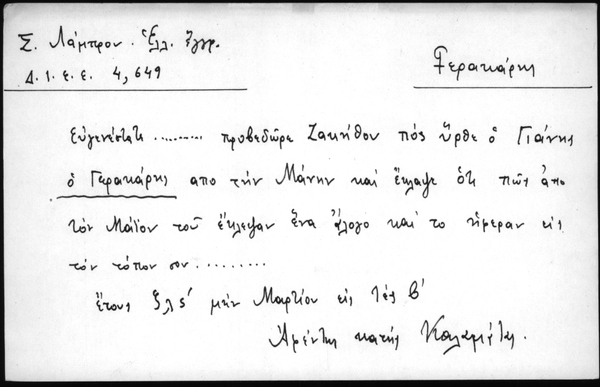 Σ. Λάμπρου. Ἑλλ. ἔγγρ.
Δ.Ι.Ε.Ε. 4, 649
Γερακάρης
Εὐγενέστατε .......... προβεδῶρε Ζακήθου πός ἦρθε ὁ Γιάνης
ὁ Γερακάρης απο τήν Μάνην καί ἔκλαψε ὅτι πῶς ἀπο
τόν Μάϊον τοῦ ἔκλεψαν ἕνα ἄλογο καί το ἤφεραν εἰς
τόν τόπον σου..........
ἔτους ζλς΄ μήν Μαρτίου εἰς τές β΄
Ἀμέντης κατής Καλαμάτας.